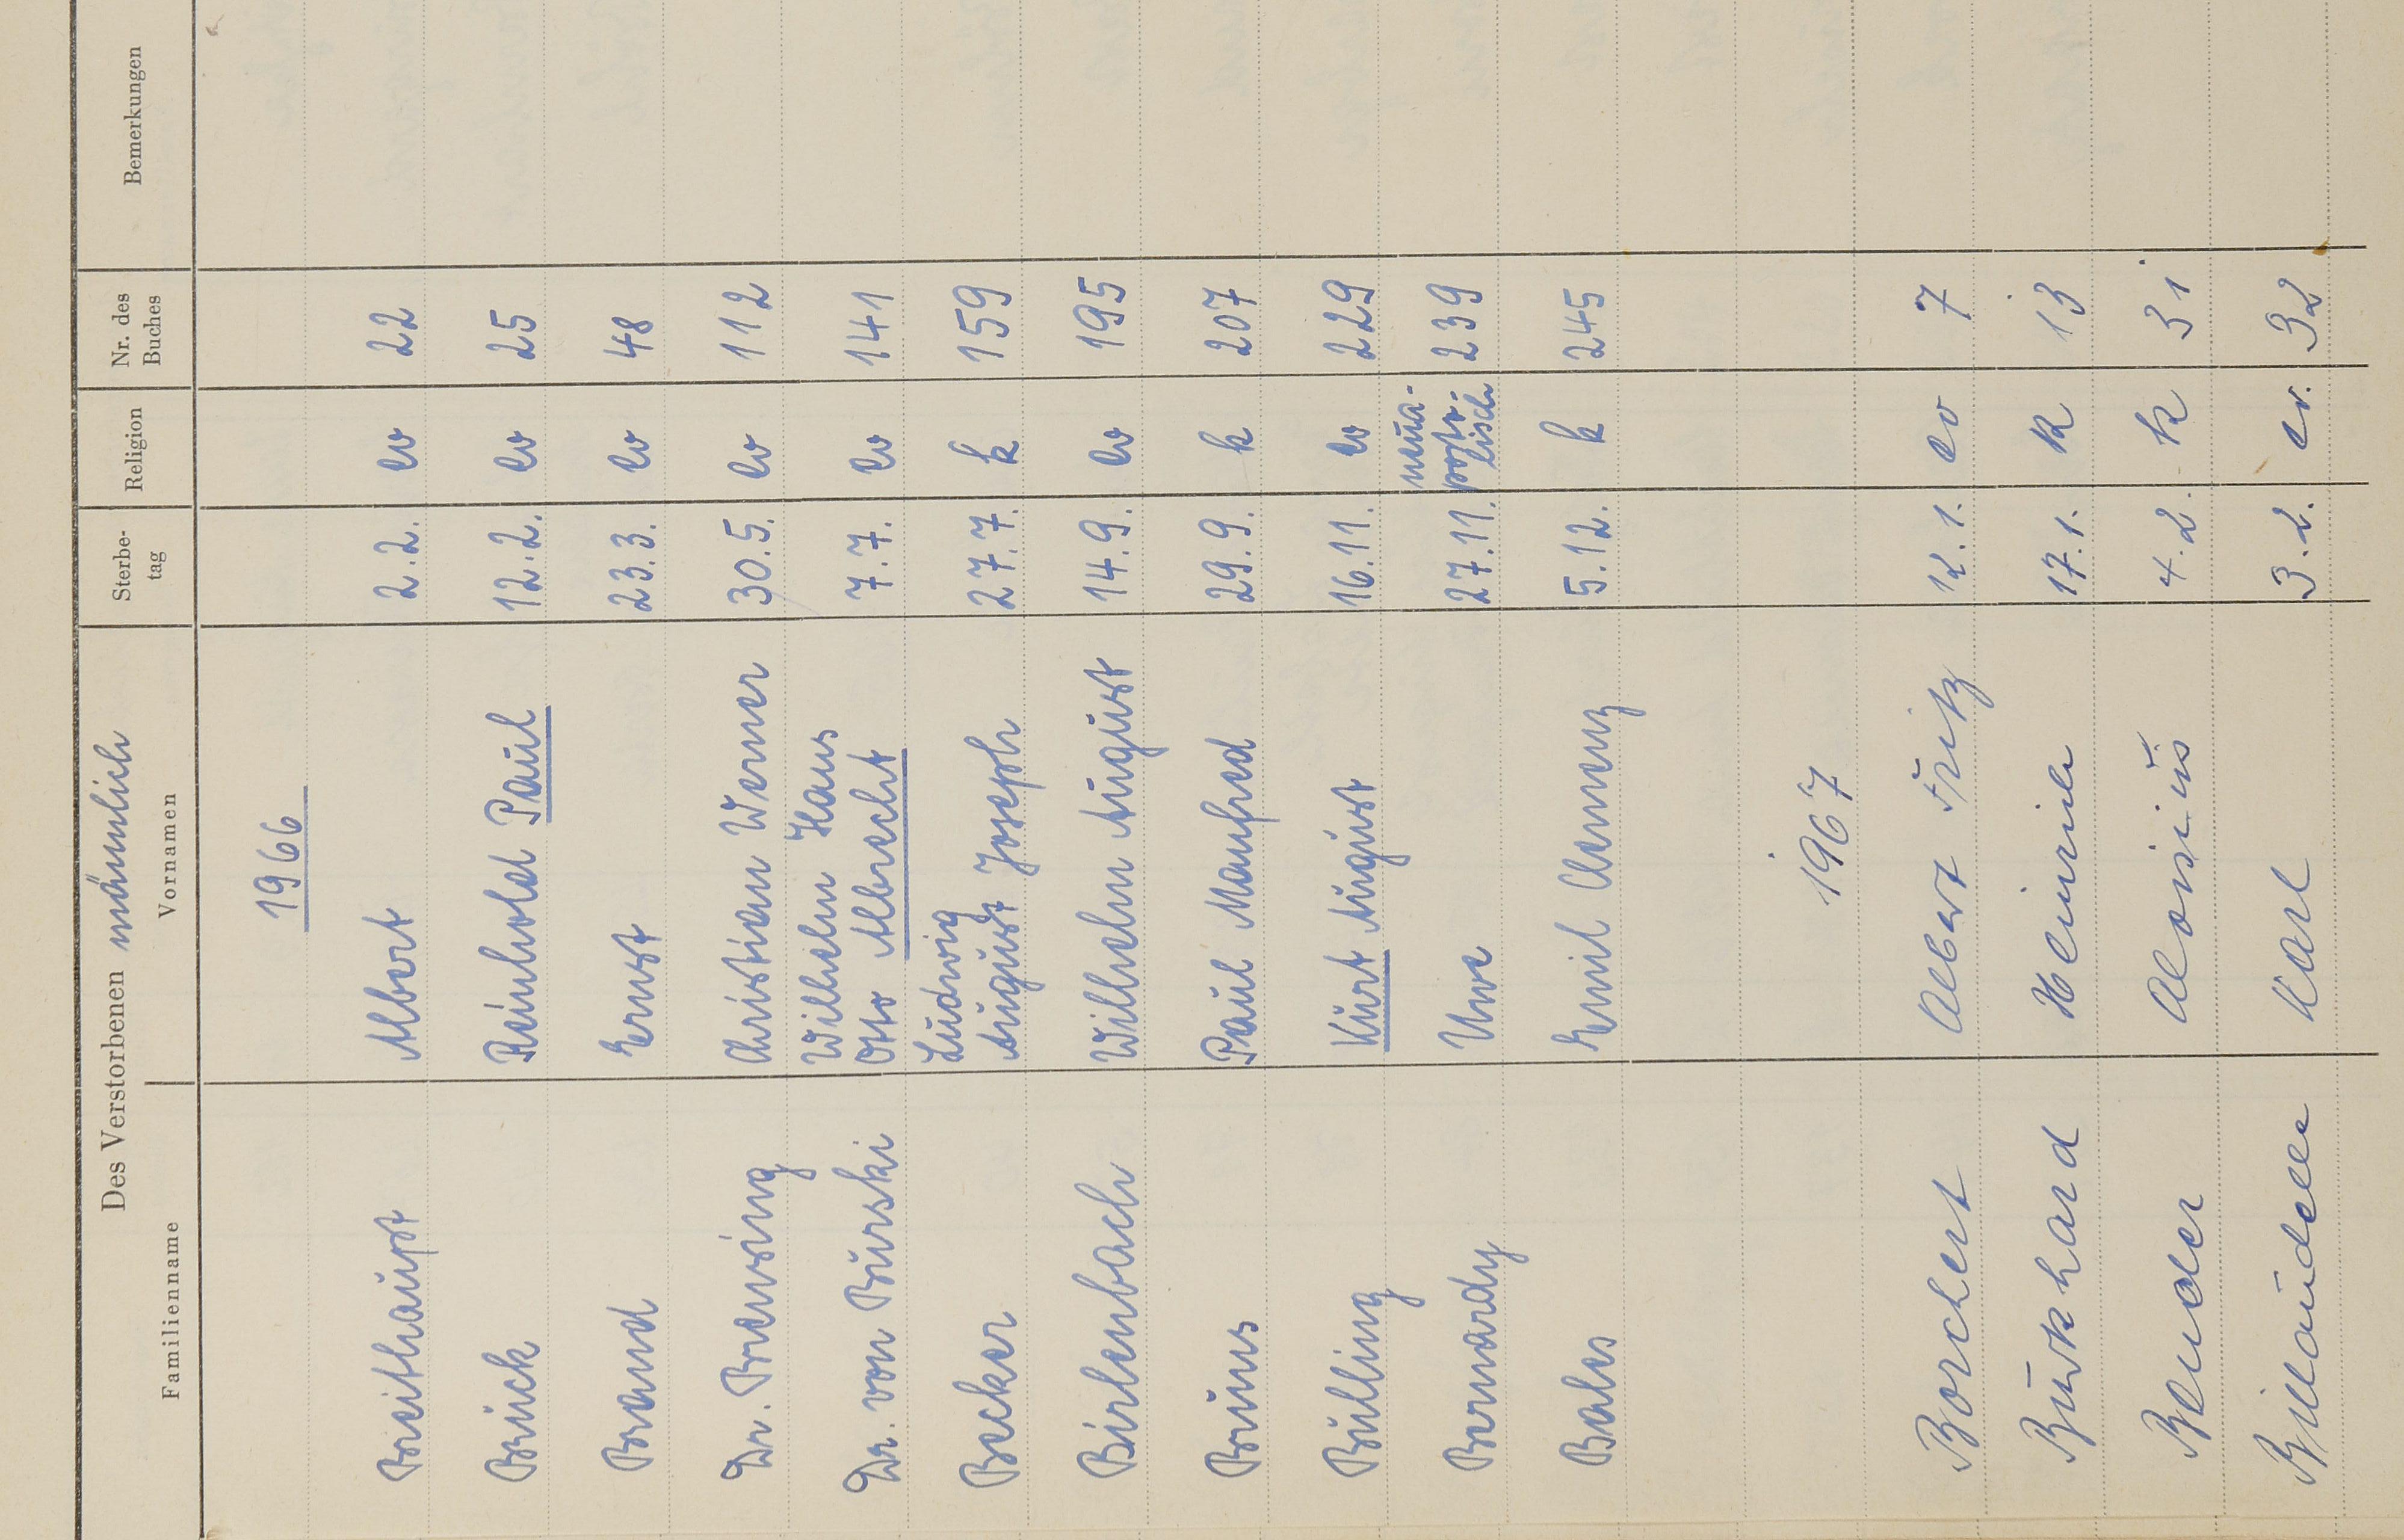 Des Verstorbenen männlich
Familienname Vornamen Sterbe- Religion Nr. des Bemerkungen
tag Buches
1966
Breithaupt Albert 2.2. ev 22
Brück Reinhold Paul 12.2. ev 25
Brand Ernst 23.3. ev 48
Dr. Brensing Christian Werner 30.5. ev 112
Wilhelm Hans
Dr. von Burski Otto Albrecht 7.7. ev 141
Ludwig
Becker August Joseph 27.7. k 159
Birlenbach Wilhelm August 14.9. ev 195
Bruns Paul Manfred 29.9. k 207
Bulling Kurt August 16.11. ev 229
neua-
Bernardy Uwe 27.11. posto- 239
lisch
Bales Emil Clemenz 5.12. k 245
1967
Borchert Albert Fritz 12.1. ev 7
Burkhard Heinrich 17.1. k 13
Bender Aloisius 4.2. k 31
Billaudelle Karl 3.2. ev. 32